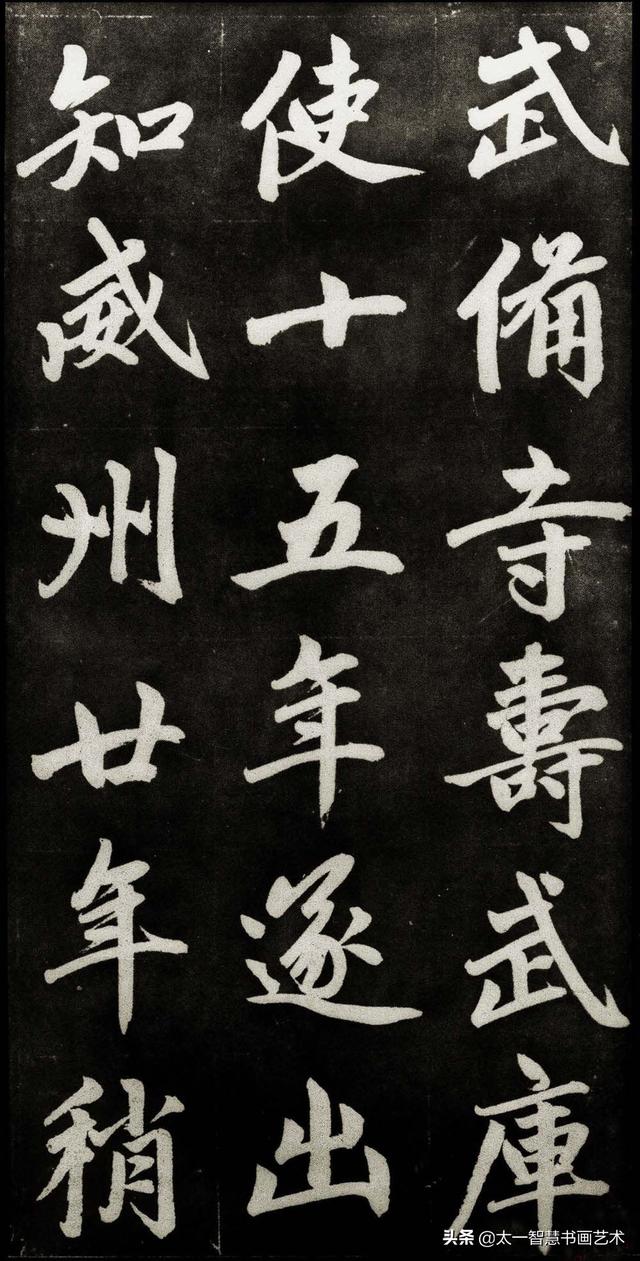 武備寺壽武庫
使十五年遂出
知威州廿年稍
头条 @太一智慧书画艺术